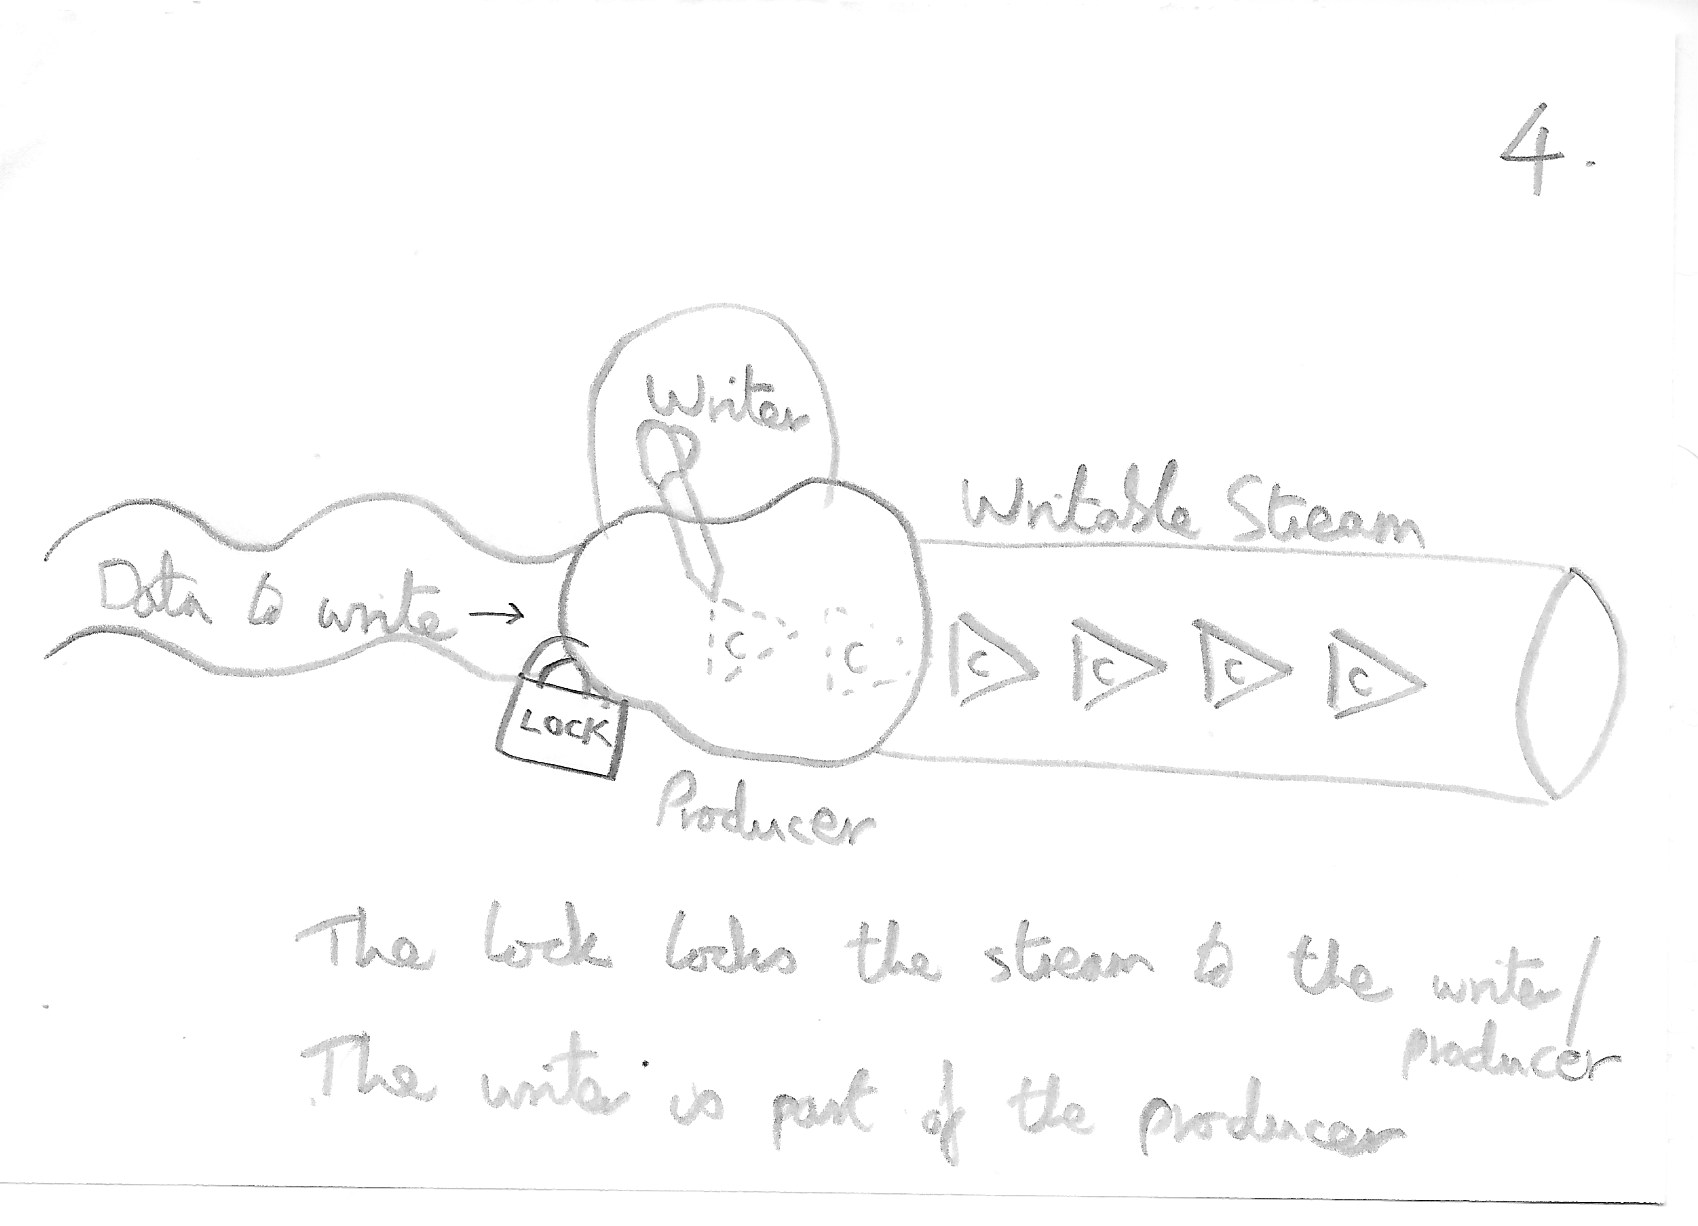 4.
Writer
Writable Stream
Data to write →
C C C C C C
LOCK
Producer
The lock locks the stream to the writer/
producer
The writer is part of the producer